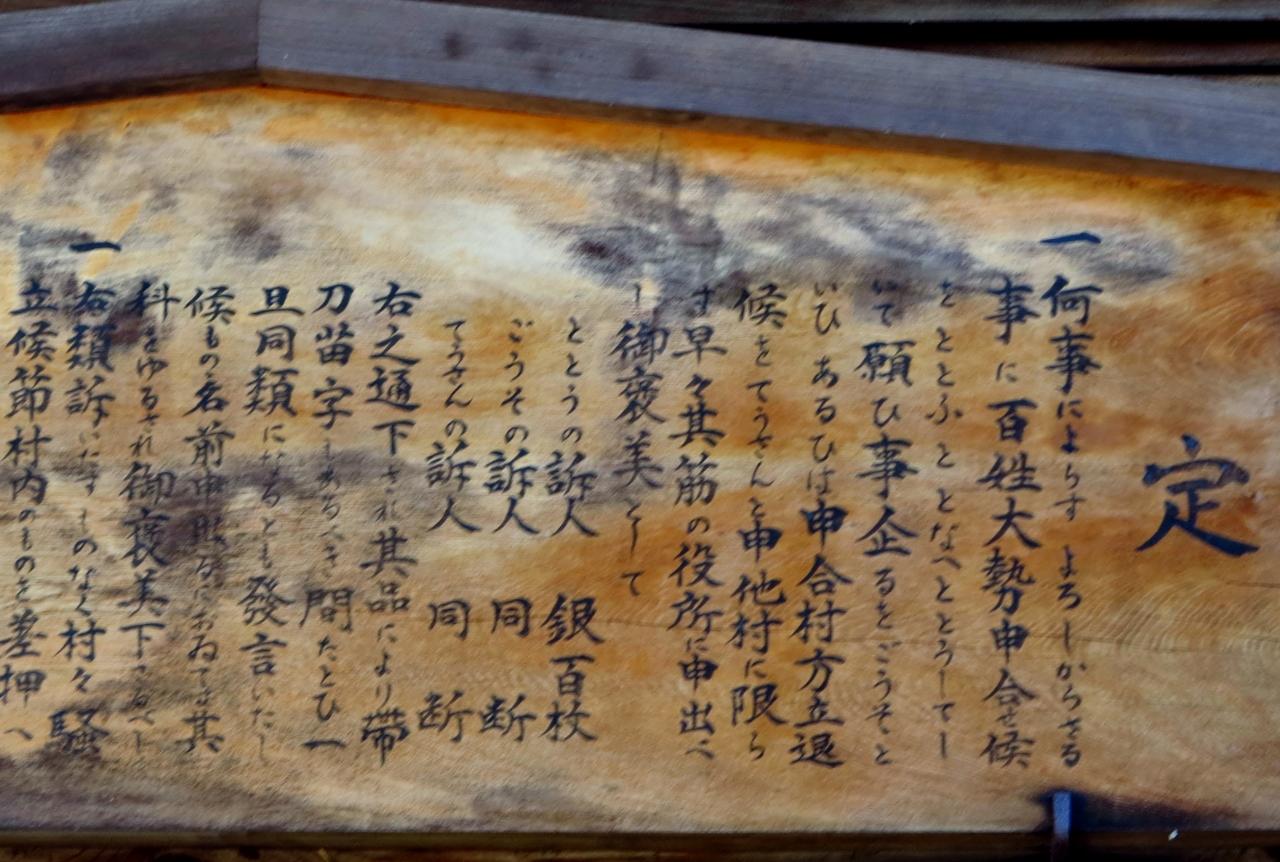 定
一何事によらすよろしからさる
事に百姓大勢申合せ候
をととふととなへととうしてし
いて願ひ事企るをごうそと
いひあるひは申合村方立退
候をてうさんと申他村に限ら
す早々其筋の役所に申出へ
し御褒美として
ととうの訴人 銀百枚
ごうその訴人 同断
てうさんの訴人 同断
右之通下され其品により帯
刀苗字しめるへき間たとひ一
旦同類になるとも發言いたし
候もの名前申出るにおゐては其
科をゆるされ御褒美下さるへし
一右類訴いたすものなく村々騒
立候節村内のものを差押へ